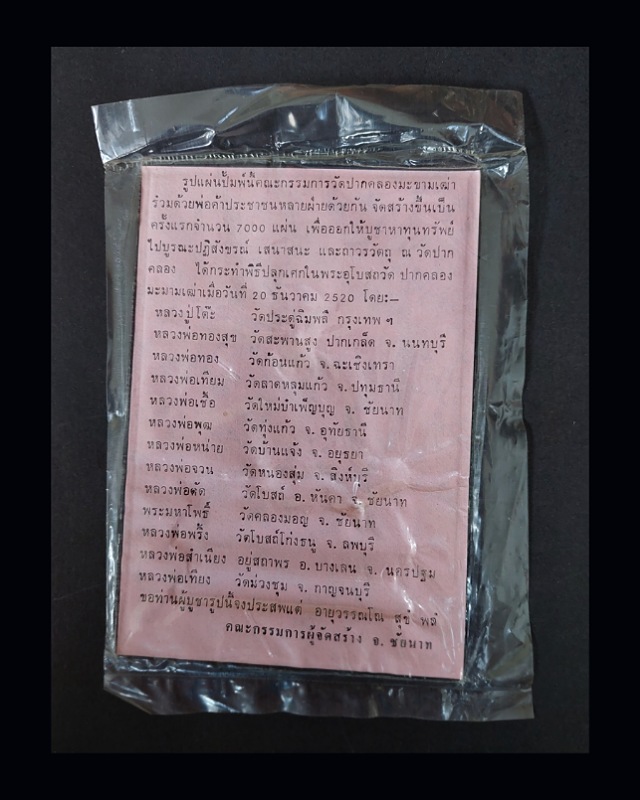 รูปแผ่นปั้มพ์นี้คณะกรรมการวัดปากคลองมะขามเฒ่า
ร่วมด้วยพ่อค้าประชาชนหลายฝ่ายด้วยกัน จัดสร้างขึ้นเป็น
ครั้งแรกจำนวน 7000 แผ่น เพื่อออกให้บูชาหาทุนทรัพย์
ไปบูรณะปฏิสังขรณ์ เสนาสนะ และถาวรวัตถุ ณ วัดปาก
คลอง ได้กระทำพิธีปลุกเศกในพระอุโบสถวัด ปากคลอง
มะขามเฒ่าเมื่อวันที่ 20 ธันวาคม 2520 โดย:—
หลวงปู่โต๊ะ วัดประดู่ฉิมพลี กรุงเทพ ฯ
หลวงพ่อทองสุข วัดสะพานสูง ปากเกล็ด จ. นนทบุรี
หลวงพ่อทอง วัดก้อนแก้ว จ. ฉะเชิงเทรา
หลวงพ่อเทียม วัดลาดหลุมแก้ว จ. ปทุมธานี
หลวงพ่อเชื้อ วัดใหม่บำเพ็ญบุญ จ. ชัยนาท
หลวงพ่อพุฒ วัดทุ่งแก้ว จ. อุทัยธานี
หลวงพ่อหน่าย วัดบ้านแจ้ง จ. อยุธยา
หลวงพ่อจวน วัดหนองสุ่ม จ. สิงห์บุรี
หลวงพ่อดัด วัดโบสถ์ อ. หันคา จ. ชัยนาท
พระมหาโพธิ์ วัดคลองมอญ จ. ชัยนาท
หลวงพ่อพริ้ง วัดโบสถ์โก่งธนู จ. ลพบุรี
หลวงพ่อสำเนียง อยู่สถาพร อ. บางเลน จ. นครปฐม
หลวงพ่อเทียง วัดม่วงชุม จ. กาญจนบุรี
ขอท่านผู้บูชารูปนี้จงประสพแต่ อายุวรรณโณ สุขํ พลํ
คณะกรรมการผู้จัดสร้าง จ. ชัยนาท